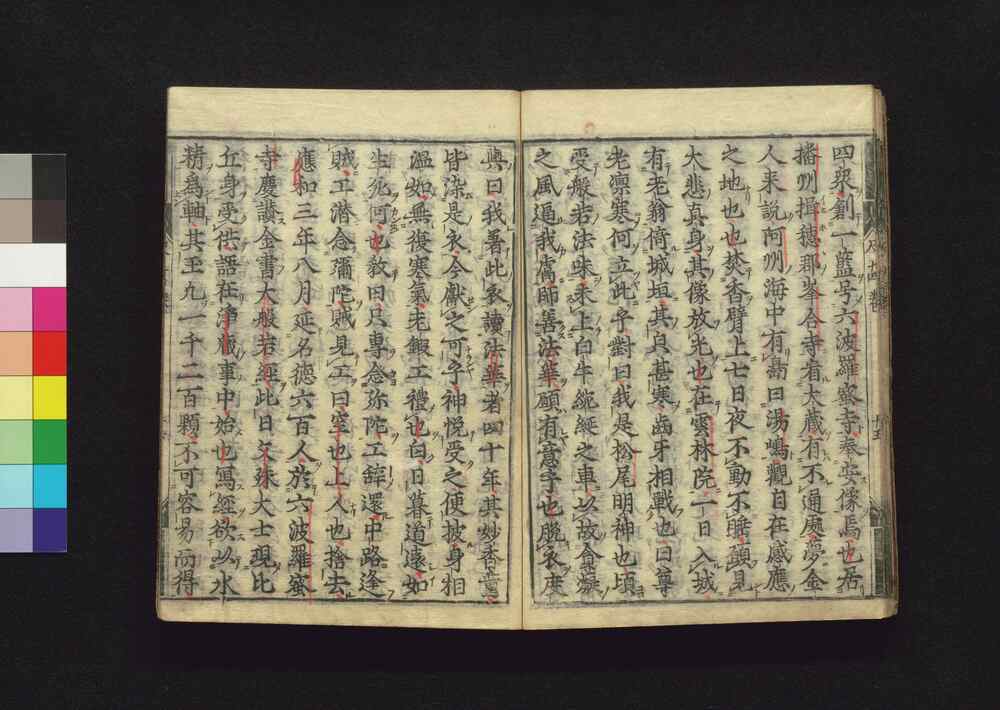 四衆創一藍号六波羅蜜寺奉安像焉也居
播州揖穗郡峯合寺看大蔵有不通處夢金
人來說阿州海中有嶌曰湯嶋觀自在感應
之地也也焚香臂上七日夜不動不睡頭見
大悲真身其像放光也在雲林院一日入城
有老翁倚城垣其皃甚寒齒牙相戰也曰尊
老凛寒何立此乎對曰我是松尾明神也頃
受般若法味未上白牛純綻之車以故含凝
之風逼我膚師善法華願有意乎也脫衣度
與曰我著此衣讀法華者四十年其妙香薰
皆染是衣今獻之可乎神悅受之便披身相
温如無復寒氣老鍜工禮也曰日暮道遠如
生死何也教曰只專念弥陀工辞還中路逢
賊工潜念彌陀賊見工曰空也上人也捨去
應和三年八月延名德六百人於六波羅蜜
寺慶讚金書大般若經此日文殊大士現比
丘身受供語在淨藏事中始也寫經欲以水
精爲軸其玉九一千二百顆不可容易而得